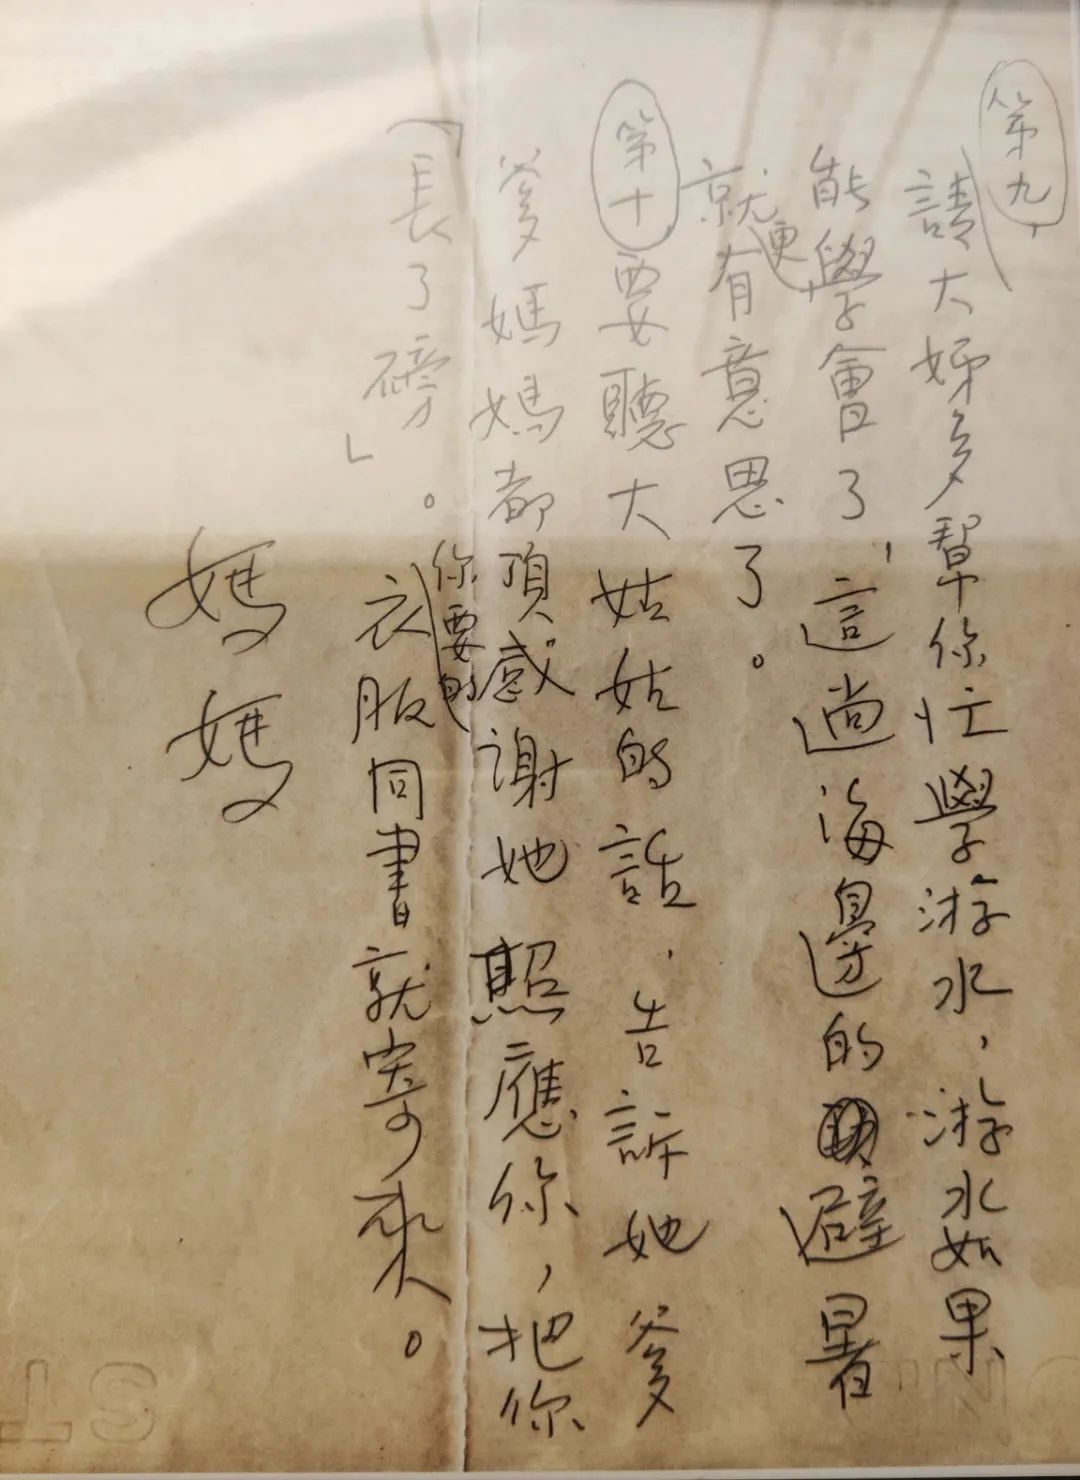 第九，
請大姊多幫你忙學游水，游水如果
能學會了，這趟海邊的避暑
就更有意思了。
第十要聽大姑姑的話，告訴她爹
爹媽媽都頂感謝她照應你，把你
「長了磅」。
你要的
衣服同書就寄來。
媽媽